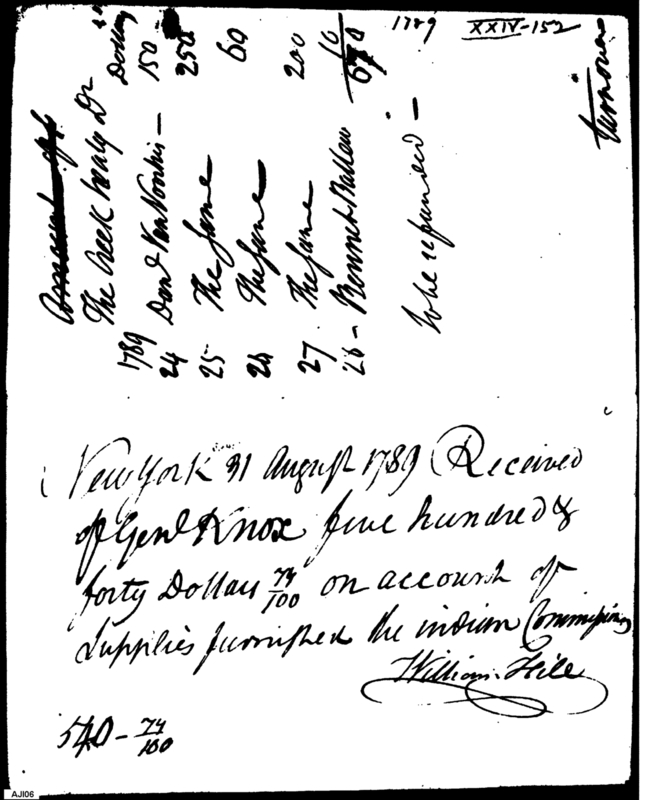 1789 XXIV-152
turnover
The Creek treaty Dr Dollars
1789
24 Danl Van Voorhis — 150
25 The Same 250
26 The Same 60
27 The Same 200
28 - Bennet Ballew 10
670
to be refunded —
New York 31 August 1789 Received
of Genl Knox five hundred &
forty Dollars 74/100 on account of
Supplies furnished the indian Commissioners
William Hill
540 - 74/100
AJI06